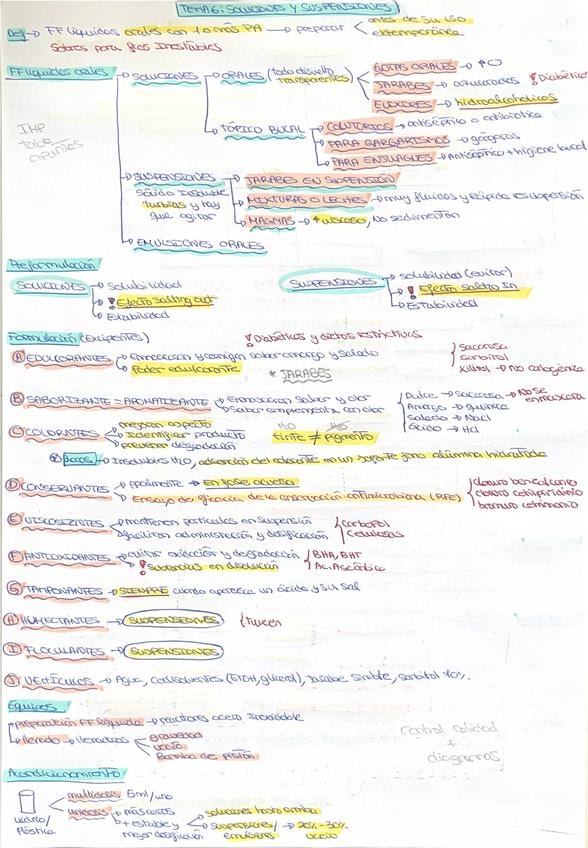 TEMA 6: SOLUCIONES Y SUSPENSIONES
Def → FF líquidas orales con 1 o más PA → preparar < antes de su uso
extemporánea
Sobres para PAs inestables
FF líquidas orales
SOLUCIONES → ORALES (todo disuelto transparentes)
GOTAS ORALES → ↑C)
JARABES → azucarados ! Diabéticos
ELIXIRES → hidroalcohólicos
TÓPICO BUCAL
COLUTORIOS → antiséptico o antibiótico
PARA GARGARISMOS → gárgaras
PARA ENJUAGUES → Antiséptico + higiene bucal
IMP
tabla
apuntes
SUSPENSIONES
sólido insoluble
turbias y hay
que agitar
JARABES EN SUSPENSIÓN
MIXTURAS O LECHES → muy fluidas y rápida redispersión
MAGMAS → ↑ viscoso, No sedimentan
EMULSIONES ORALES
Preformulación
SOLUCIONES
→ Solubilidad
→ ! Efecto salting out
→ Estabilidad
SUSPENSIONES
→ solubilidad (evitar)
→ ! Efecto salting In
→ Estabilidad
Formulación (Excipientes)
! Diabéticos y dietas restrictivas
A EDULCORANTES → Enmascaran y corrigen sabor amargo y salado
→ Poder edulcorante
* JARABES
sacarosa
sorbitol
xilitol → No cariogénico
B SABORIZANTE = AROMATIZANTE → Enmascaran sabor y olor
→ Sabor complementa con olor
Dulce → sacarosa → No se enmascara
Amargo → quinina
Salado → NaCl
Ácido → HCl
C COLORANTES
→ mejoran aspecto
→ identificar producto
→ prevenir degradación
H2O H2O
tinte ≠ pigmento
→ Lacas → insolubles H2O, adsorción del colorante en un soporte como alúmina hidratada
D CONSERVANTES → ppalmente → En fase acuosa
→ Ensayo de eficacia de la conservación antimicrobiana (RFE)
cloruro benzalconio
cloruro cetilpiridinio
bromuro cetrimonio
E VISCOSIZANTES → mantienen partículas en suspensión
→ facilitan administración y dosificación
Carbopol
Celulosas
F ANTIOXIDANTES → evitar oxidación y degradación
→ ! sustancias en disolución
BHA, BHT
Ac. Ascórbico
G TAMPONANTES → SIEMPRE cuando aparezca un ácido y su sal
H HUMECTANTES → SUSPENSIONES { tween
I FLOCULANTES → SUSPENSIONES
J VEHÍCULOS → Agua, codisolventes (ETOH, glicerol), jarabe simple, sorbitol 70%.
Equipos
→ preparación FF líquida → reactores acero inoxidable
→ llenado → llenadoras
gravedad
vacío
Bomba de pistón
control calidad
+
diagramas
Acondicionamiento
vidrio/
Plástico
multidosis 5ml/uno
unidosis → más caros
+ estable y
mejor dosificación
→ soluciones hasta arriba
→ suspensiones/ emulsiones → 20%-30% vacío